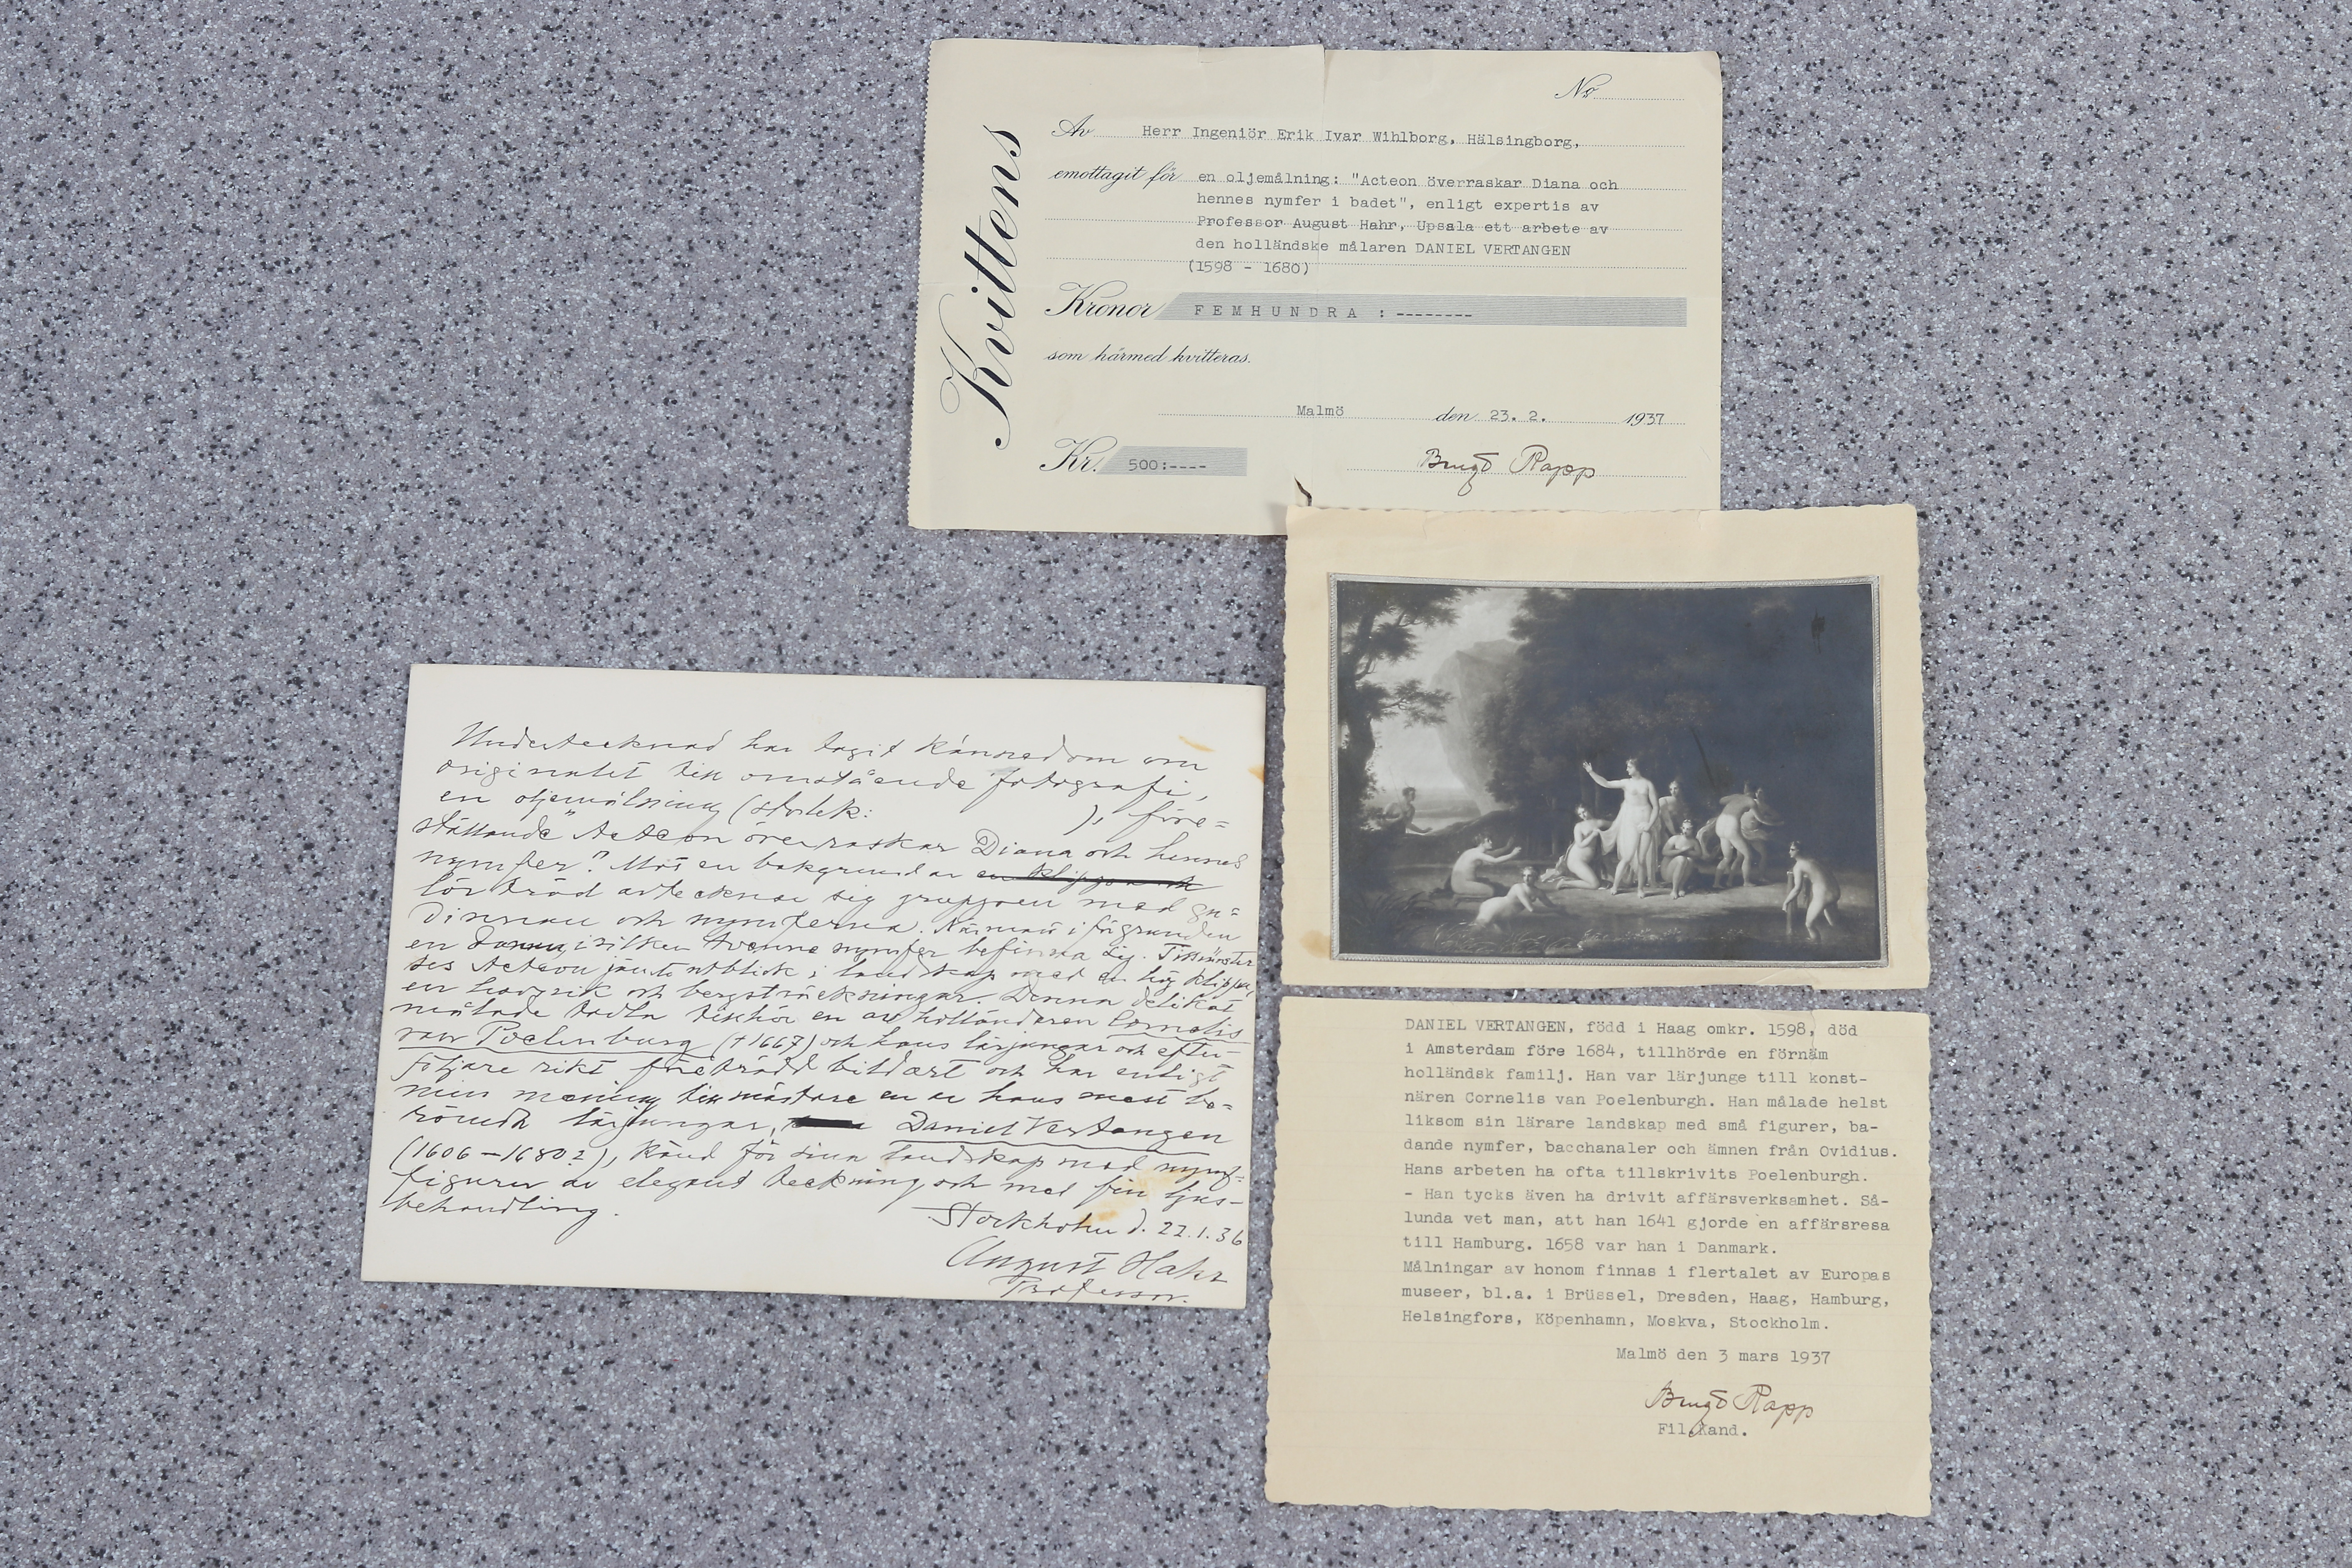 Kvittens
No
Av Herr Ingeniör Erik Ivar Wihlborg, Hälsingborg,
emottagit för en oljemålning: "Acteon överraskar Diana och
hennes nymfer i badet", enligt expertis av
Professor August Hahr, Upsala ett arbete av
den holländske målaren DANIEL VERTANGEN
(1598 - 1680)
Kronor FEMHUNDRA :--------
som härmed kvitteras.
Malmö den 23. 2. 1937
Kr. 500:----
Bengt Rapp
Undertecknad har tagit kännedom om
originalet till omstående fotografi,
en oljemålning (storlek: ), före=
ställande "Acteon överraskar Diana och hennes
nymfer". Mot en bakgrund av
löv träd avtecknar sig gruppen med gu=
dinnan och nymferna. Närmast i förgrunden
en damm, i vilken tvenne nymfer befinna sig. Till vänster
ses Acteon jämte utblick i landskap med en hög klippa,
en havsvik och bergsträckningar. Denna delikat
målade tavla tillhör en av holländaren Cornelis
van Poelenburg (†1667) och hans lärjungar och efter-
följare rikt företrädd bildart och har enligt
min mening till mästare en av hans mest be=
römda lärjungar, Daniel Vertangen
(1606-1680?), känd för sina landskap med nymf=
figurer av elegant teckning och med fin ljus-
behandling.
Stockholm d. 22.1.36
August Hahr
Professor.
DANIEL VERTANGEN, född i Haag omkr. 1598, död
i Amsterdam före 1684, tillhörde en förnäm
holländsk familj. Han var lärjunge till konst-
nären Cornelis van Poelenburgh. Han målade helst
liksom sin lärare landskap med små figurer, ba-
dande nymfer, bacchanaler och ämnen från Ovidius.
Hans arbeten ha ofta tillskrivits Poelenburgh.
- Han tycks även ha drivit affärsverksamhet. Så-
lunda vet man, att han 1641 gjorde en affärsresa
till Hamburg. 1658 var han i Danmark.
Målningar av honom finnas i flertalet av Europas
museer, bl.a. i Brüssel, Dresden, Haag, Hamburg,
Helsingfors, Köpenhamn, Moskva, Stockholm.
Malmö den 3 mars 1937
Bengt Rapp
Fil.Kand.